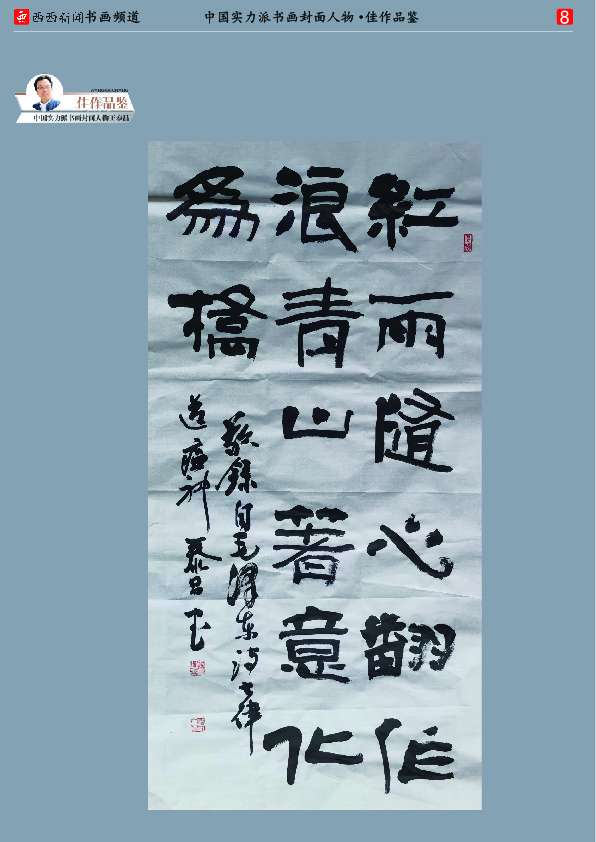 西西新闻书画频道
中国实力派书画封面人物•佳作品鉴
8
佳作品鉴
中国实力派书画封面人物王泰昌
紅雨隨心翻作
浪青山著意化
為橋
敬錄自毛澤东诗七律
送瘟神 泰昌